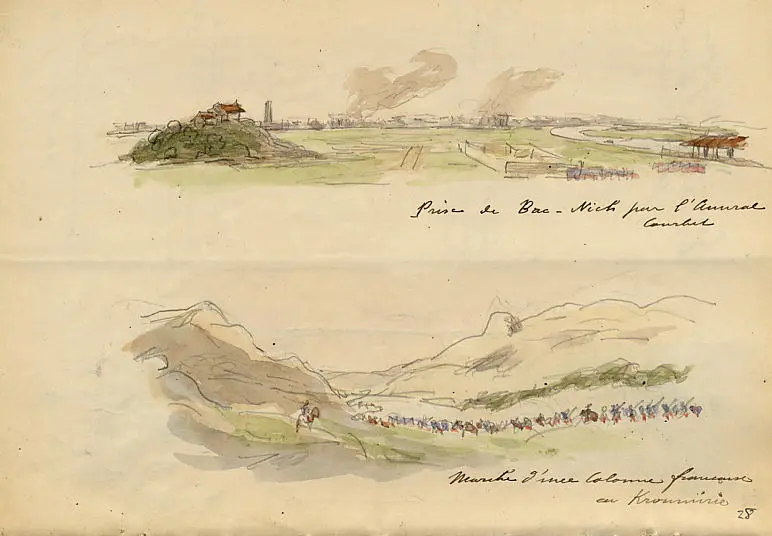 Prise de Bac-Nich par l'Amiral
Courbet
Marche d'une Colonne française
en Kroumirie
28